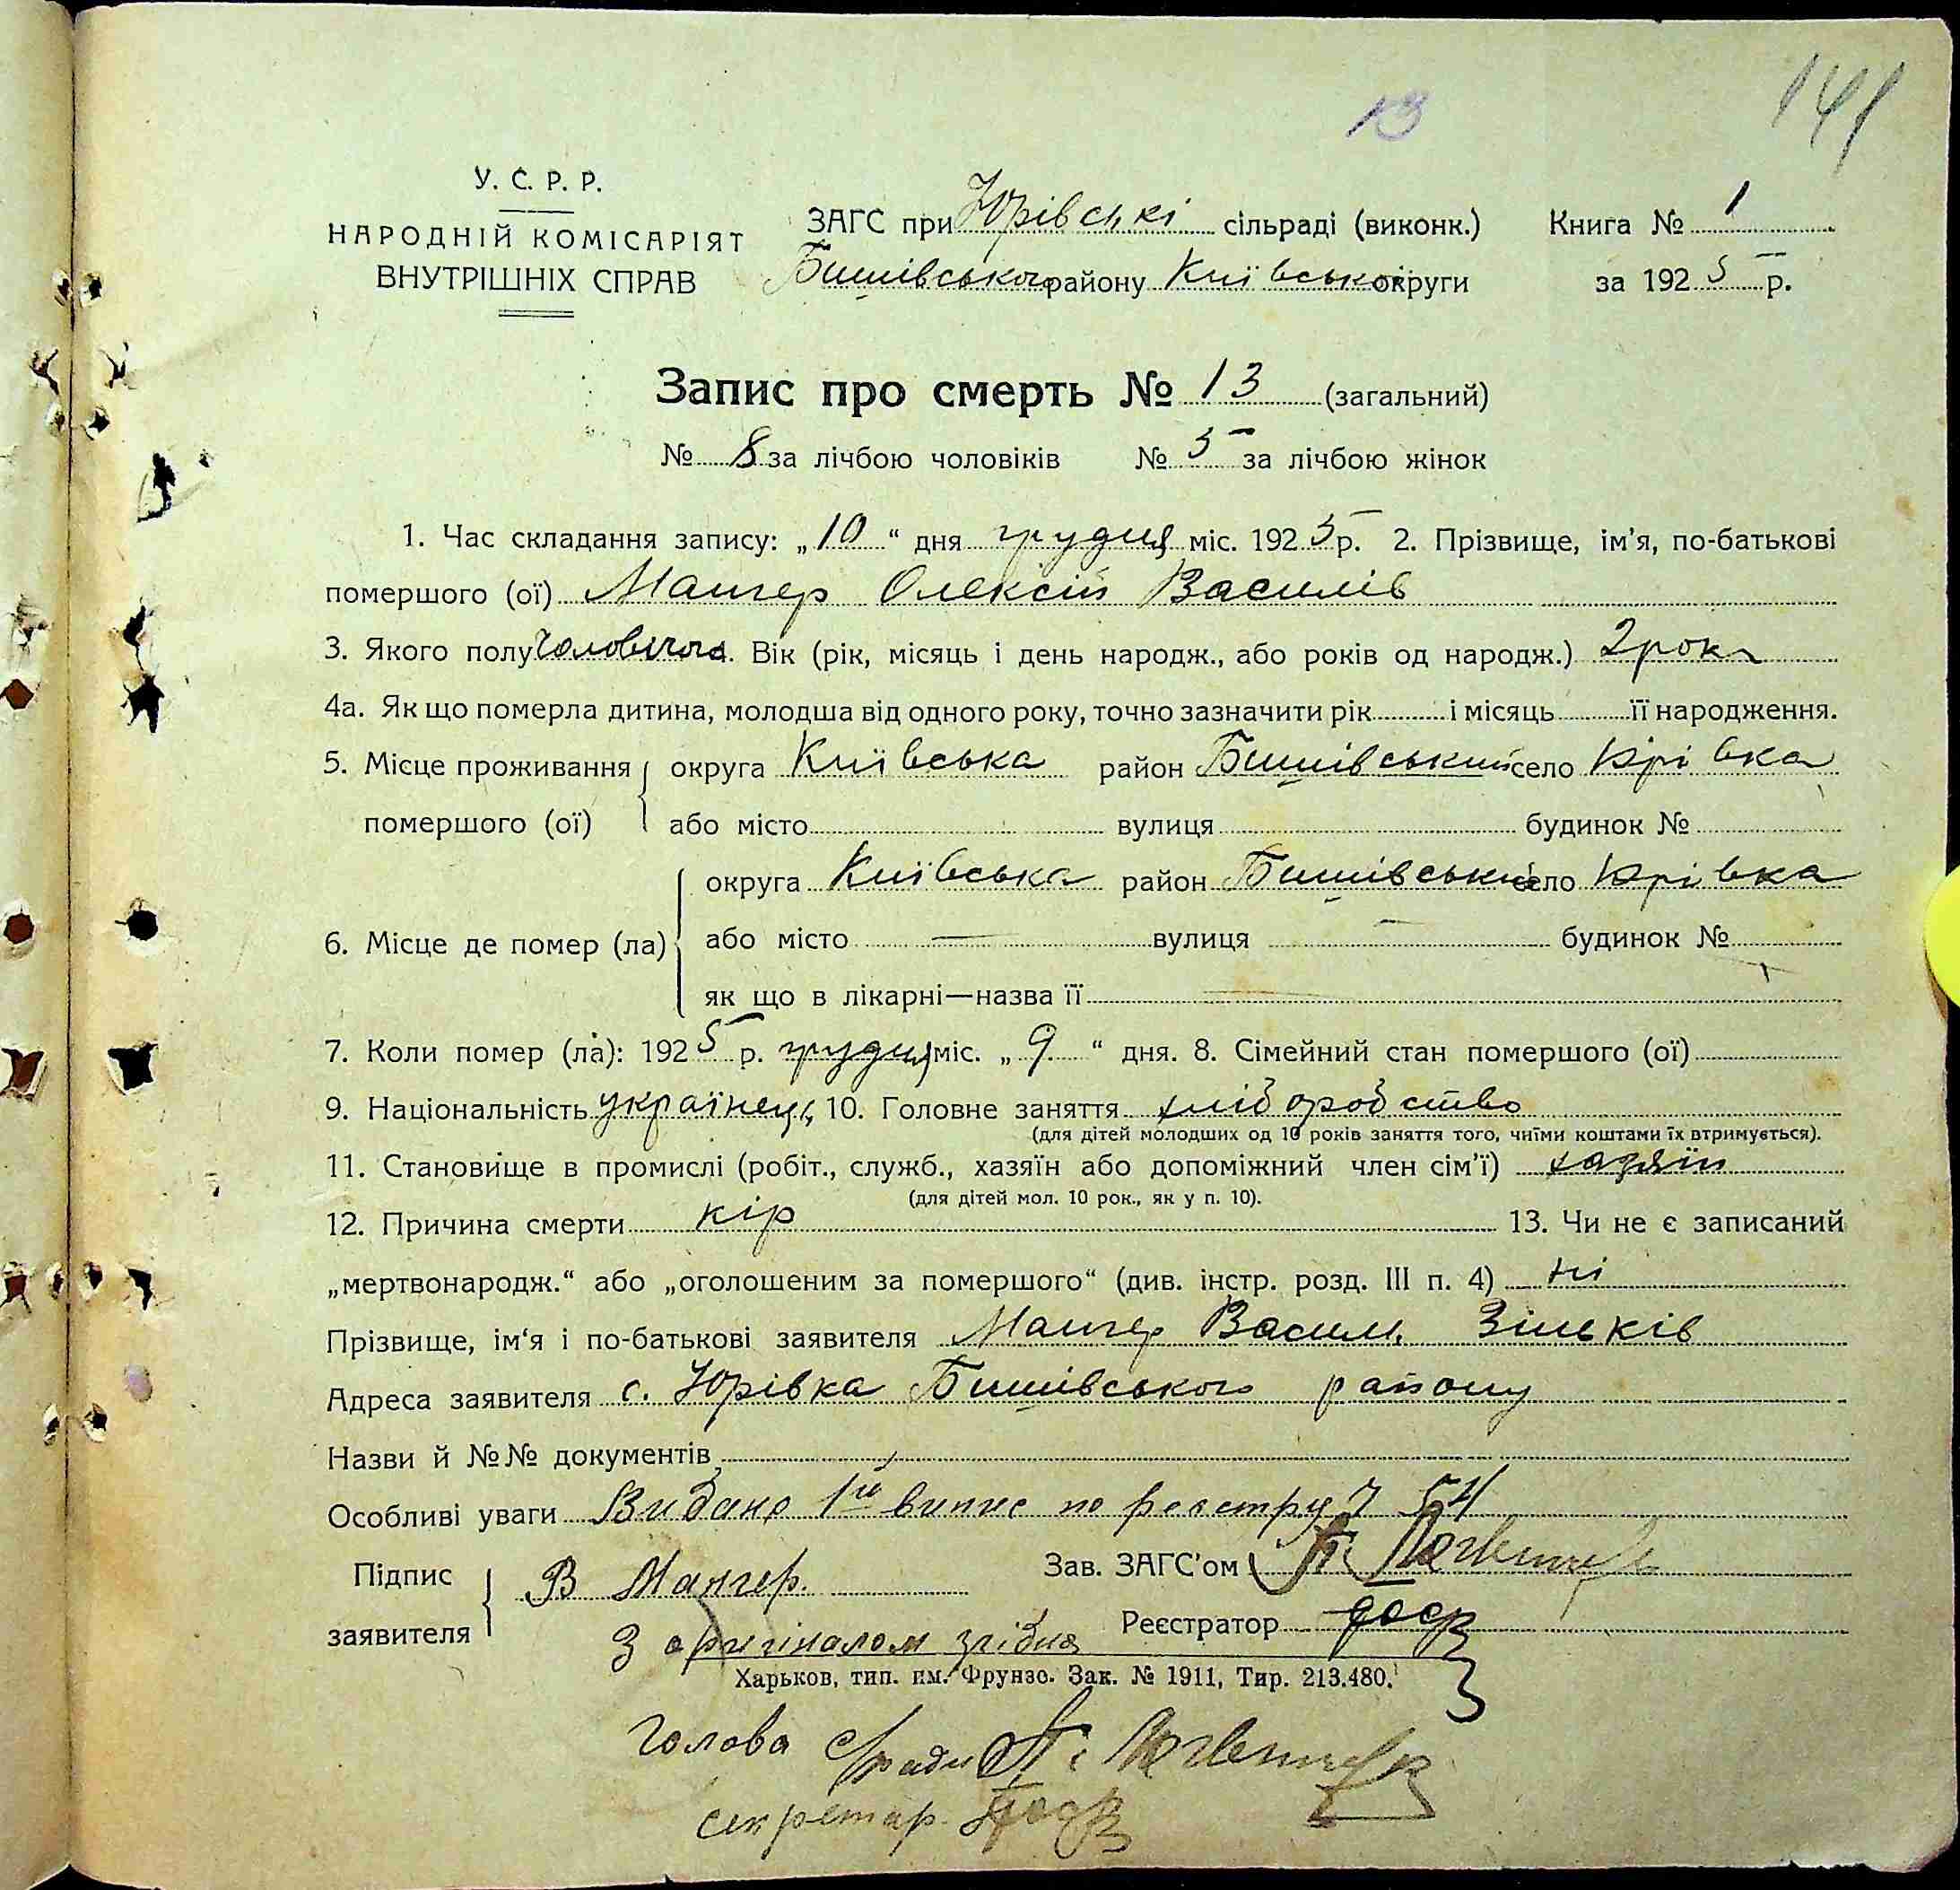 141
13
У. С. Р. Р.
НАРОДНІЙ КОМІСАРІЯТ
ВНУТРІШНІХ СПРАВ
ЗАГС при Юрівські сільраді (виконк.)
Бишівського району Київської округи
Книга № 1
за 1925 р.
Запис про смерть № 13 (загальний)
№ 8 за лічбою чоловіків № 5 за лічбою жінок
1. Час складання запису: „10“ дня грудня міс. 1925 р. 2. Прізвище, ім’я, по-батькові
помершого (ої) Мангер Олексій Василів
3. Якого полу чоловічого. Вік (рік, місяць і день народж., або років од народж.) 2 рок
4а. Як що померла дитина, молодша від одного року, точно зазначити рік і місяць її народження.
5. Місце проживання округа Київська район Бишівський село Юрівка
помершого (ої) або місто вулиця будинок №
округа Київська район Бишівський село Юрівка
6. Місце де помер (ла) або місто — вулиця — будинок №
як що в лікарні—назва її —
7. Коли помер (ла): 1925 р. грудня міс. „9“ дня. 8. Сімейний стан помершого (ої)
9. Національність українець 10. Головне заняття хліборобство
(для дітей молодших од 10 років заняття того, чиїми коштами їх втримується).
11. Становище в промислі (робіт., служб., хазяїн або допоміжний член сім’ї) хазяїн
(для дітей мол. 10 рок., як у п. 10).
12. Причина смерти кір 13. Чи не є записаний
„мертвонародж.“ або „оголошеним за помершого“ (див. інстр. розд. III п. 4) ні
Прізвище, ім‘я і по-батькові заявителя Мангер Васил. Зіньків
Адреса заявителя с. Юрівка Бишівського району
Назви й №№ документів
Особливі уваги Видано 1й випис по реєстру 54
Підпис
заявителя В Мангер.
Зав. ЗАГС’ом
Реєстратор
З оригіналом згідно
Харьков, тип. им. Фрунзе. Зак. № 1911, Тир. 213.480.
Голова С/ради
секретар.